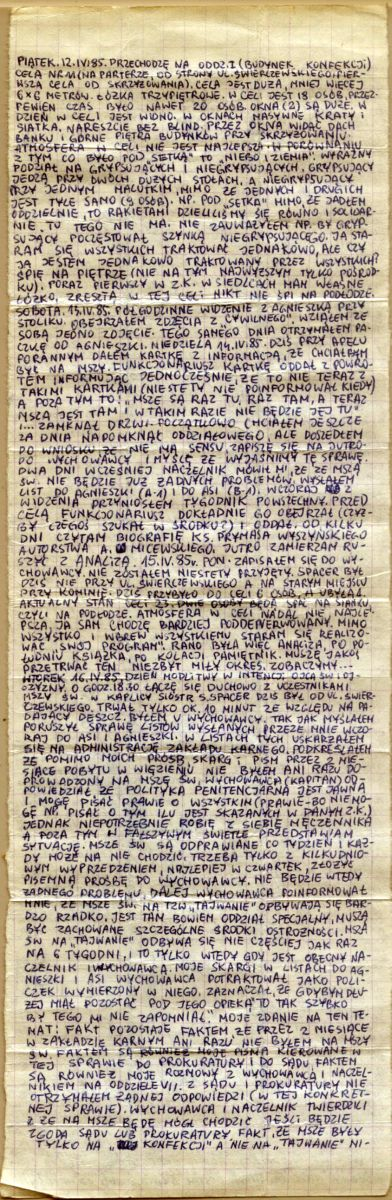 PIĄTEK. 12.IV.85. PRZECHODZĘ NA ODDZ.I (BUDYNEK KONFEKCJI)
CELA NR 11 (NA PARTERZE, OD STRONY UL. ŚWIERCZEWSKIEGO, PIER-
WSZA CELA OD SKRZYŻOWANIA). CELA JEST DUŻA, MNIEJ WIĘCEJ
6×6 METRÓW. ŁÓŻKA TRZYPIĘTROWE. W CELI JEST 18 OSÓB, PRZEZ
PEWIEN CZAS BYŁO NAWET 20 OSÓB. OKNA (2) SĄ DUŻE. W
DZIEŃ W CELI JEST WIDNO. W OKNACH MASYWNE KRATY I
SIATKA, NARESZCIE BEZ BLIND. PRZEZ OKNA WIDAĆ DACH
BANKU I GÓRNE PIĘTRA BUDYNKÓW PRZY SKRZYŻOWANIU.
ATMOSFERA W CELI NIE JEST NAJLEPSZA. W PORÓWNANIU
Z TYM CO BYŁO POD „SETKĄ" TO „NIEBO I ZIEMIA". WYRAŹNY
PODZIAŁ NA GRYPSUJĄCYCH I NIEGRYPSUJĄCYCH. GRYPSUJĄCY
JEDZĄ PRZY DWÓCH DUŻYCH STOŁACH, A NIEGRYPSUJĄCY
PRZY JEDNYM MALUTKIM, MIMO ŻE JEDNYCH I DRUGICH
JEST TYLE SAMO (9 OSÓB). NP. POD „SETKĄ" MIMO, ŻE JADŁEM
ODDZIELNIE, TO RAKIETAMI DZIELILIŚMY SIĘ RÓWNO I SOLIDAR-
NIE, TU TEGO NIE MA. NIE ZAUWAŻYŁEM NP. BY GRYP
SUJĄCY POCZĘSTOWAŁ SZYNKĄ NIEGRYPSUJĄCEGO. JA STA-
RAM SIĘ WSZYSTKICH TRAKTOWAĆ JEDNAKOWO, ALE CZY
JA JESTEM JEDNAKOWO TRAKTOWANY PRZEZ WSZYSTKICH?
ŚPIĘ NA PIĘTRZE (NIE NA TYM NAJWYŻSZYM TYLKO POŚROD-
KU). PO RAZ PIERWSZY W Z.K. W SIEDLCACH MAM WŁASNE
ŁÓŻKO, ZRESZTĄ W TEJ CELI NIKT NIE ŚPI NA PODŁODZE.
SOBOTA. 13.IV.85. PÓŁGODZINNE WIDZENIE Z AGNIESZKĄ PRZY
STOLIKU. OBEJRZAŁEM ZDJĘCIA Z „CYWILNEGO". WZIĄŁEM ZE
SOBĄ JEDNO ZDJĘCIE. TEGO SAMEGO DNIA OTRZYMAŁEM PA-
CZKĘ OD AGNIESZKI. NIEDZIELA 14.IV.85. DZIŚ PRZY APELU
PORANNYM DAŁEM KARTKĘ Z INFORMACJĄ, ŻE CHCIAŁBYM
BYĆ NA MSZY. FUNKCJONARIUSZ KARTKĘ ODDAŁ Z POWRO-
TEM INFORMUJĄC JEDNOCZEŚNIE, ŻE TO NIE TERAZ Z
TAKIMI KARTKAMI (NIESTETY NIE POINFORMOWAŁ KIEDY)
A POZA TYM TO: „MSZE SĄ RAZ TU, RAZ TAM, A TERAZ
MSZA JEST TAM I W TAKIM RAZIE NIE BĘDZIE JEJ TU"
I... ZAMKNĄŁ DRZWI. POCZĄTKOWO CHCIAŁEM JESZCZE
ZA DNIA NAPOMKNĄĆ ODDZIAŁOWEGO, ALE DOSZEDŁEM
DO WNIOSKU, ŻE NIE MA SENSU. ZAPISZĘ SIĘ NA JUTRO
DO WYCHOWAWCY I MYŚLĘ ŻE WYJAŚNIMY TĘ SPRAWĘ.
DWA DNI WCZEŚNIEJ NACZELNIK MÓWIŁ MI, ŻE ZE MSZĄ
ŚW. NIE BĘDZIE JUŻ ŻADNYCH PROBLEMÓW. WYSŁAŁEM
LIST DO AGNIESZKI (A-1) I DO ASI (B-1). WCZORAJ Z
WIDZENIA PRZYNIOSŁEM TYGODNIK POWSZECHNY. PRZED
CELĄ FUNKCJONARIUSZ DOKŁADNIE GO OBEJRZAŁ (CZY-
BY CZEGOŚ SZUKAŁ W ŚRODKU?) I ODDAŁ. OD KILKU
DNI CZYTAM BIOGRAFIĘ KS. PRYMASA WYSZYŃSKIEGO
AUTORSTWA A. MICEWSKIEGO. JUTRO ZAMIERZAM RU-
SZYĆ Z ANALIZĄ. 15.IV.85. PON. ZAPISAŁEM SIĘ DO WY-
CHOWAWCY, NIE ZOSTAŁEM NIESTETY PRZYJĘTY. SPACER BYŁ
DZIŚ NIE PRZY UL. ŚWIERCZEWSKIEGO A NA STARYM MIEJSCU
PRZY KOMINIE. DZIŚ PRZYBYŁO DO CELI 6 OSÓB, A UBYŁA 1.
AKTUALNY STAN CELI 23. DWIE OSOBY BĘDĄ SPAĆ NA STANKU
CZYLI NA PODŁODZE. ATMOSFERA W CELI NADAL NIE NAJLE-
PSZA, JA SAM CHODZĘ BARDZIEJ PODDENERWOWANY. MIMO
WSZYSTKO I WBREW WSZYSTKIEMU STARAM SIĘ REALIZO-
WAĆ „SWÓJ PROGRAM". RANO BYŁA WIĘC ANALIZA, PO PO-
ŁUDNIU KSIĄŻKA, PO KOLACJI PAMIĘTNIK. MUSZĘ JAKOŚ
PRZETRWAĆ TEN NIEZBYT MIŁY OKRES. ZOBACZYMY...
WTOREK 16.IV.85. DZIEŃ MODLITWY W INTENCJI OJCA ŚW I OJ-
CZYZNY. O GODZ. 18.30 ŁĄCZĘ SIĘ DUCHOWO Z UCZESTNIKAMI
MSZY ŚW. W KAPLICY SIÓSTR S. SPACER DZIŚ BYŁ OD UL. ŚWIER-
CZEWSKIEGO. TRWAŁ TYLKO OK. 10 MINUT ZE WZGLĘDU NA PA-
DAJĄCY DESZCZ. BYŁEM U WYCHOWAWCY. TAK JAK MYŚLAŁEM
PORUSZYŁ SPRAWĘ LISTÓW WYSŁANYCH PRZEZE MNIE WCZO-
RAJ DO ASI I AGNIESZKI. W LISTACH TYCH USKARŻAŁEM
SIĘ NA ADMINISTRACJĘ ZAKŁADU KARNEGO. PODKREŚLAŁEM
ŻE POMIMO MOICH PRÓŚB, SKARG I PISM PRZEZ 2 MIE-
SIĄCE POBYTU W WIĘZIENIU NIE BYŁEM ANI RAZU DO-
PROWADZONY NA MSZĘ ŚW. WYCHOWAWCA (KAPITAN) OD-
POWIEDZIAŁ, ŻE POLITYKA PENITENCJARNA JEST JAWNA
I MOGĘ PISAĆ PRAWIE O WSZYSTKIM (PRAWIE-BO NIE MO-
GĘ NP. PISAĆ O TYM ILU JEST SKAZANYCH W DANYM Z.K.)
JEDNAK NIEPOTRZEBNIE ROBIĘ Z SIEBIE MĘCZENNIKA
A POZA TYM W FAŁSZYWYM ŚWIETLE PRZEDSTAWIAM
SYTUACJĘ. MSZE ŚW. SĄ ODPRAWIANE CO TYDZIEŃ I KAŻ-
DY MOŻE NA NIE CHODZIĆ. TRZEBA TYLKO Z KILKUDNIO-
WYM WYPRZEDZENIEM, NAJLEPIEJ W CZWARTEK, ZŁOŻYĆ
PISEMNĄ PROŚBĘ DO WYCHOWAWCY. NIE BĘDZIE WTEDY
ŻADNEGO PROBLEMU. DALEJ WYCHOWAWCA POINFORMOWAŁ
MNIE, ŻE MSZE ŚW. NA TZW. „TAJWANIE" ODBYWAJĄ SIĘ BAR-
DZO RZADKO. JEST TAM BOWIEM ODDZIAŁ SPECJALNY, MUSZĄ
BYĆ ZACHOWANE SZCZEGÓLNE ŚRODKI OSTROŻNOŚCI. MSZA
ŚW NA „TAJWANIE" ODBYWA SIĘ NIE CZĘŚCIEJ JAK RAZ
NA 6 TYGODNI, I TO TYLKO WTEDY GDY JEST OBECNY NA-
CZELNIK I WYCHOWAWCA. MOJE SKARGI W LISTACH DO AG-
NIESZKI I ASI WYCHOWAWCA POTRAKTOWAŁ JAKO POLI-
CZEK WYMIERZONY W NIEGO. ZAZNACZAŁ, ŻE GDYBYM DŁU-
ŻEJ MIAŁ POZOSTAĆ POD JEGO OPIEKĄ TO TAK SZYBKO
BY TEGO MI NIE ZAPOMNIAŁ. MOJE ZDANIE NA TEN TE-
MAT: FAKT POZOSTAJE FAKTEM ŻE PRZEZ 2 MIESIĄCE
W ZAKŁADZIE KARNYM ANI RAZU NIE BYŁEM NA MSZY
ŚW. FAKTEM SĄ RÓWNIEŻ MOJE PISMA KIEROWANE W
TEJ SPRAWIE DO PROKURATURY I DO SĄDU. FAKTEM
SĄ RÓWNIEŻ MOJE ROZMOWY Z WYCHOWAWCĄ I NACZEL-
NIKIEM NA ODDZIELE VII. Z SĄDU I PROKURATURY NIE
OTRZYMAŁEM ŻADNEJ ODPOWIEDZI (W TEJ KONKRET-
NEJ SPRAWIE). WYCHOWAWCA I NACZELNIK TWIERDZILI
ŻE NA MSZE BĘDĘ MÓGŁ CHODZIĆ JEŚLI BĘDZIE
ZGODA SĄDU LUB PROKURATURY. FAKT, ŻE MSZE BYŁY
TYLKO NA „KONFEKCJI" A NIE NA „TAJWANIE" NI-